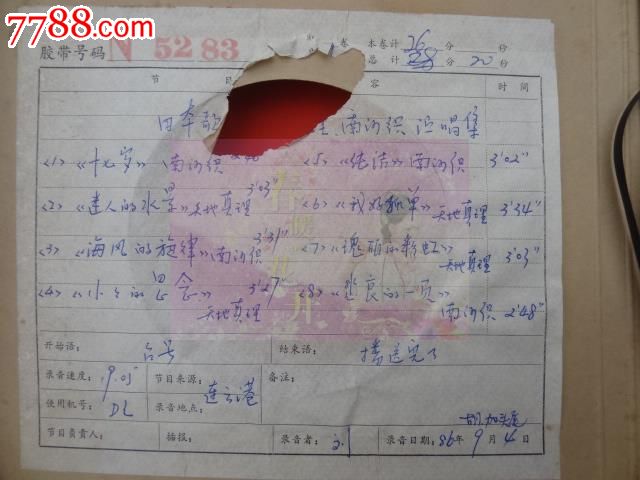 7788.com
胶带号码 N 5283 卷 本卷计 26 分 秒
总计 28 分 20 秒
节 容 时间
日本歌 南沙织 演唱集
<1> 《十七岁》 南沙织 <5> 《纯洁》 南沙织 3'02"
<2> 《迷人的水景》 天地真理 3'03" <6> 《我好孤单》 天地真理 3'34"
<3> 《海风的旋律》 南沙织 3'31" <7> 《瑰丽的彩虹》 天地真理 3'03"
<4> 《小小的思念》 天地真理 3'27" <8> 《悲哀的一页》 南沙织 2'48"
开始语: 台号 结束语: 播送完了
录音速度: 19.05 节目来源: 备注:
使用机号: DL 录音地点: 连云港
加头尾
节目负责人: 插报: 录音者: 录音日期: 86年 9月 4日